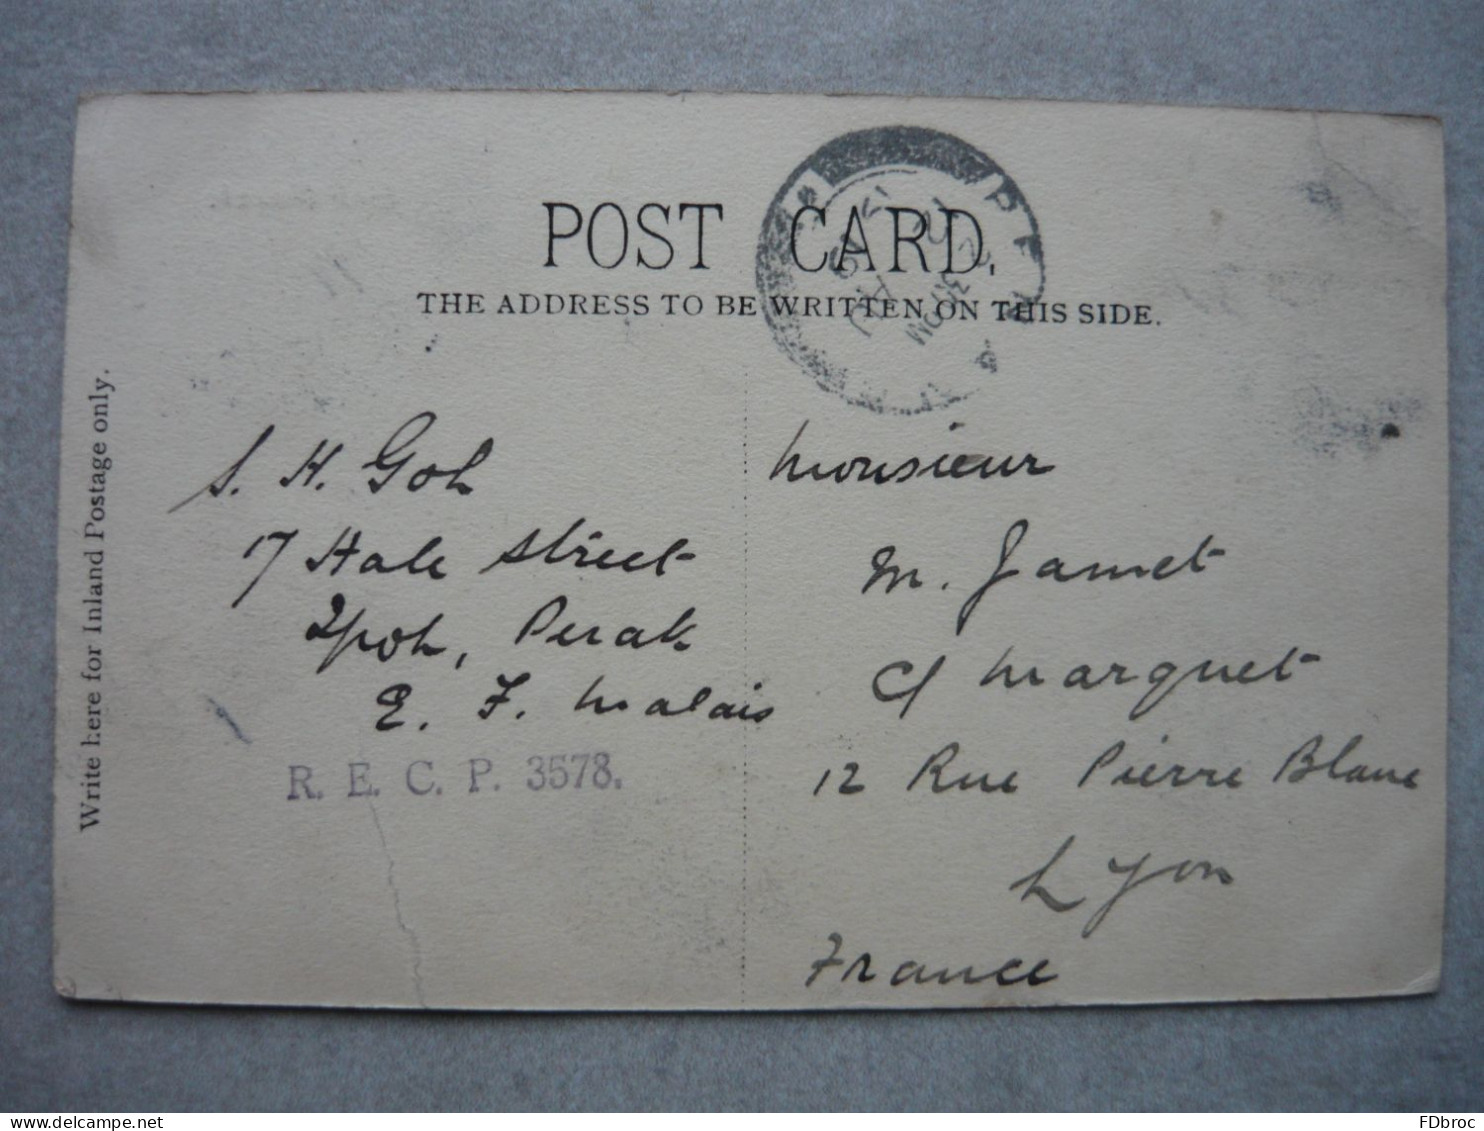 POST CARD.
THE ADDRESS TO BE WRITTEN ON THIS SIDE.
Write here for Inland Postage only.
S. H. Goh
17 Hale Street
Ipoh, Perak
E. F. Malais
R. E. C. P. 3578.
Monsieur
M. Jamet
c/ Marquet
12 Rue Pierre Blanc
Lyon
France
delcampe.net
FDbroc